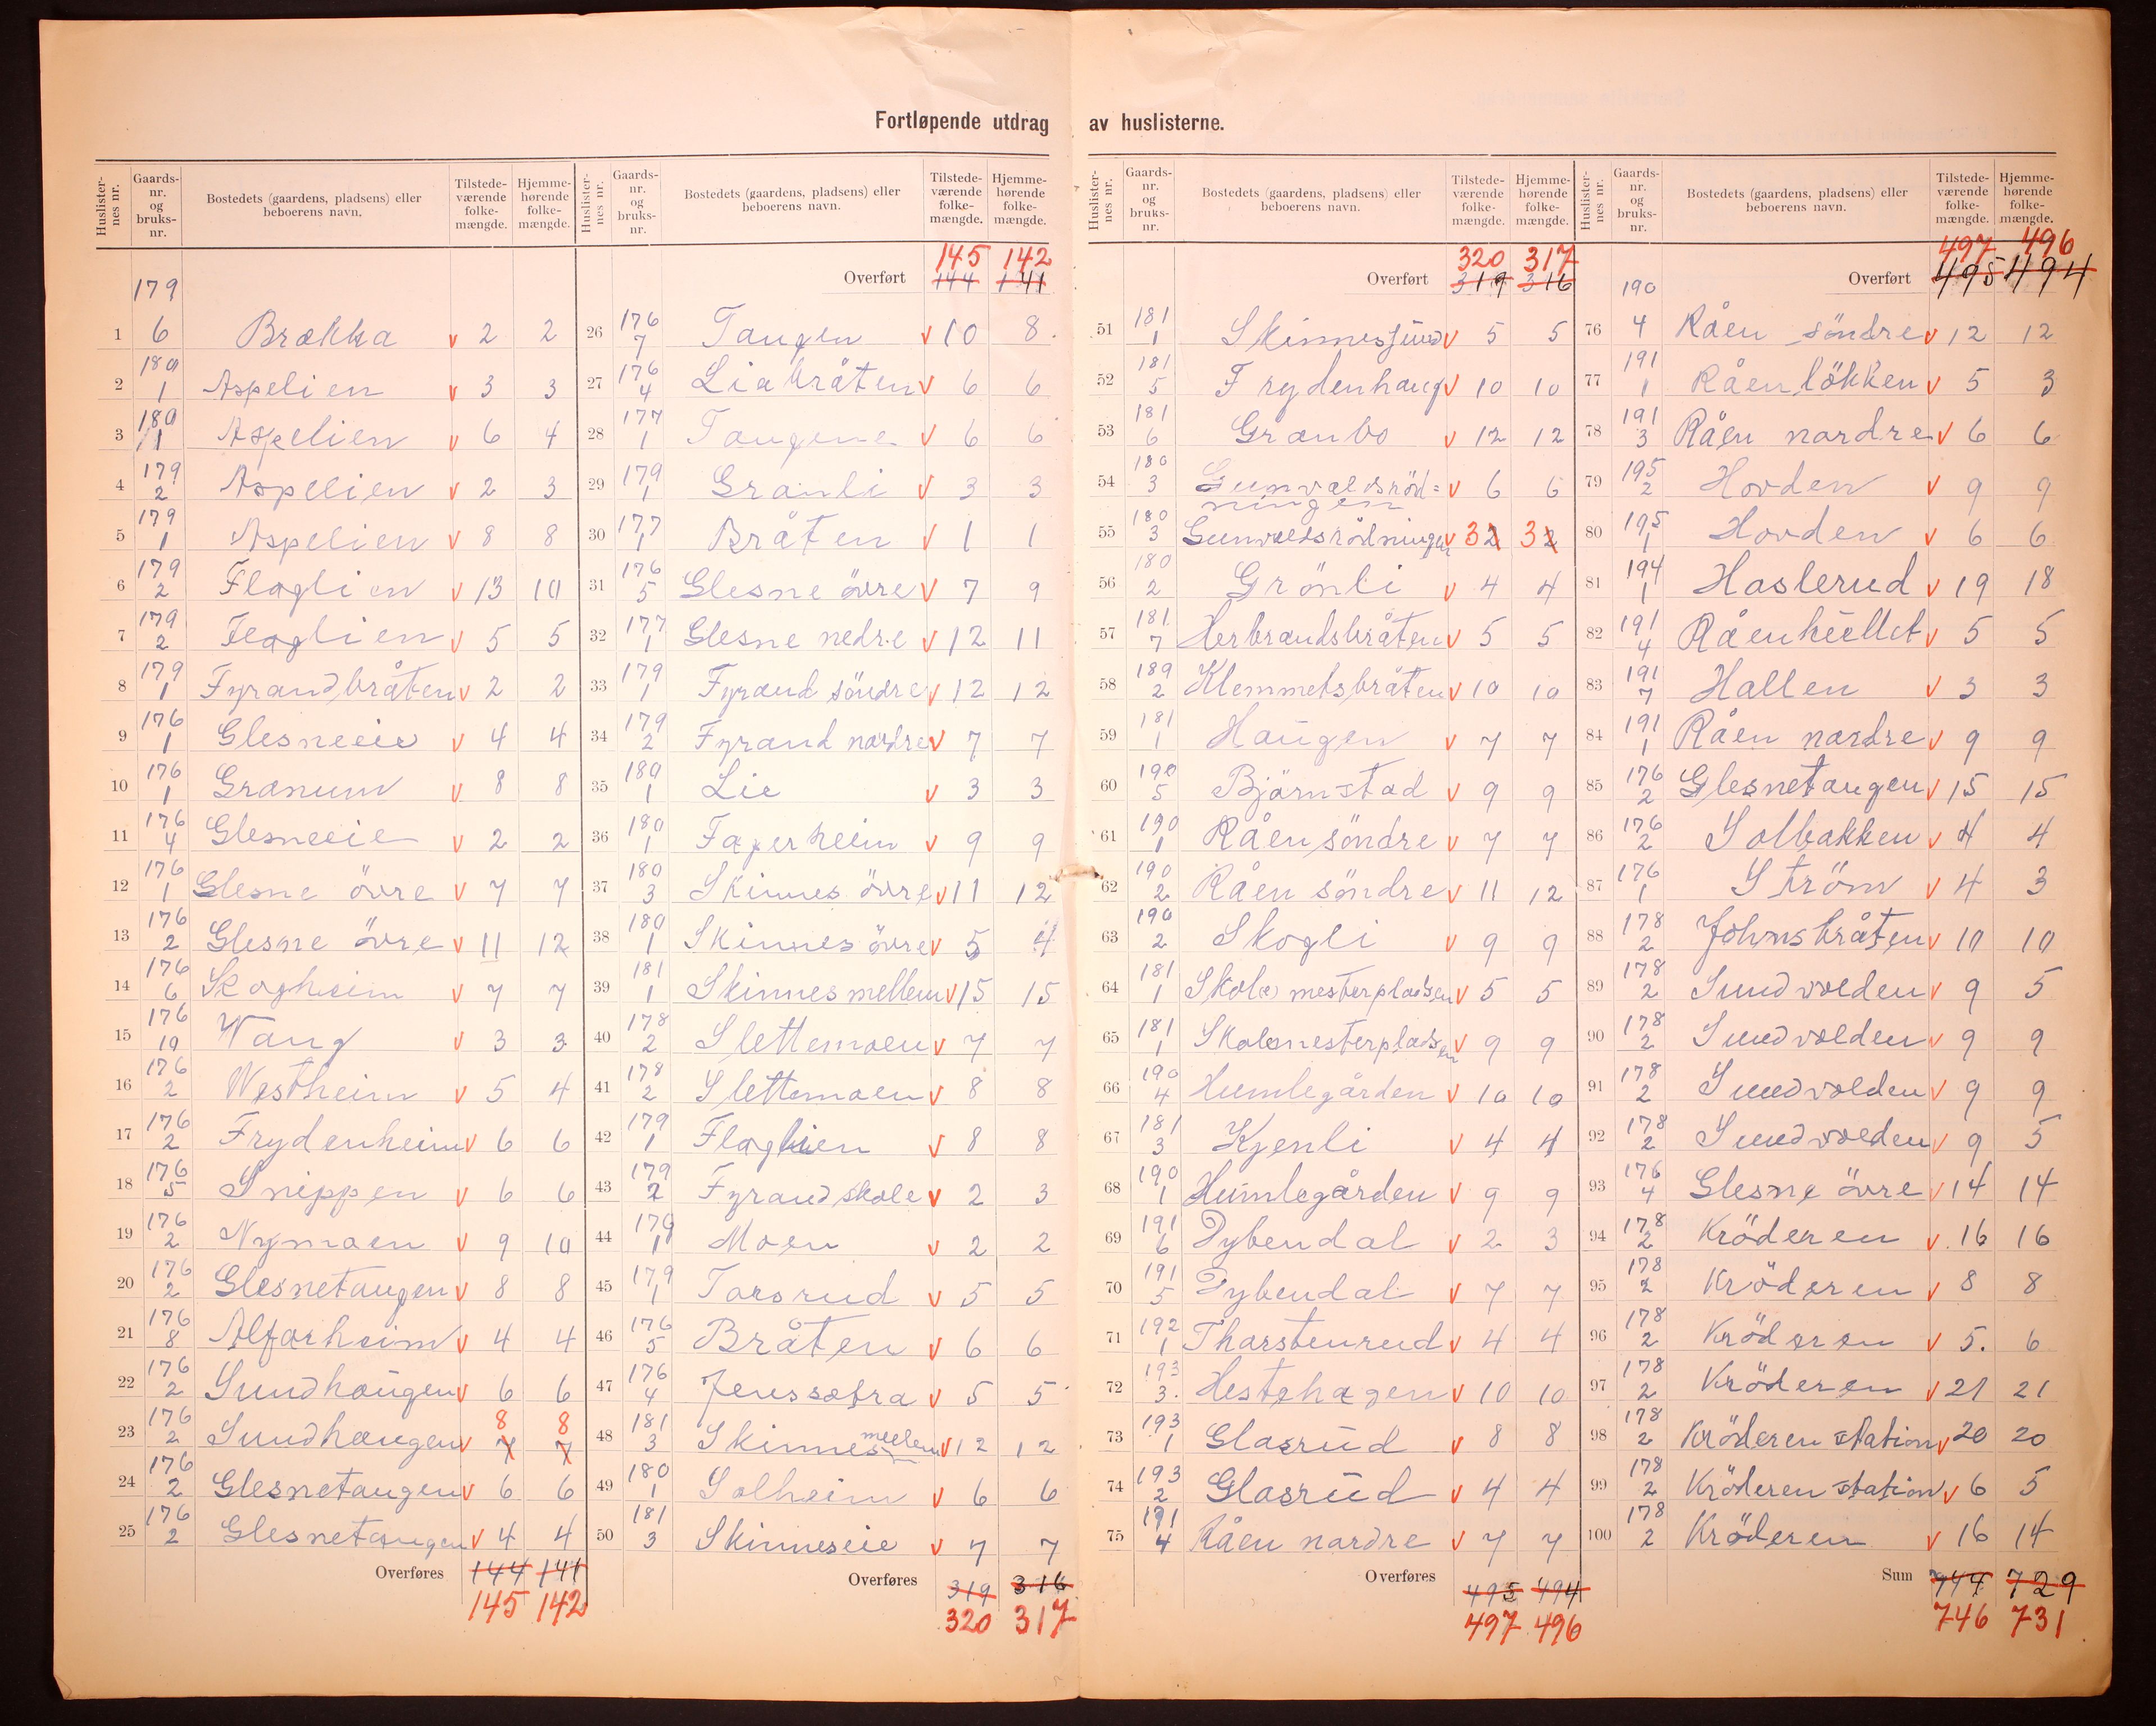 Fortløpende utdrag av huslisterne.
Huslister-nes nr. Gaards-nr. og bruks-nr. Bostedets (gaardens, pladsens) eller beboerens navn. Tilstede-værende folke-mængde. Hjemme-hørende folke-mængde.
179
1 6 Brækka v 2 2
2 180/1 Aspelien v 3 3
3 180/1 Aspelien v 6 4
4 179/2 Aspelien v 2 3
5 179/1 Aspelien v 8 8
6 179/2 Flaglien v 13 10
7 179/2 Flaglien v 5 5
8 179/1 Fyrandbråten v 2 2
9 176/1 Glesneeie v 4 4
10 176/1 Granum v 8 8
11 176/4 Glesneeie v 2 2
12 176/1 Glesne övre v 7 7
13 176/2 Glesne övre v 11 12
14 176/6 Skogheim v 7 7
15 176/10 Wang v 3 3
16 176/2 Westheim v 5 4
17 176/2 Frydenheim v 6 6
18 176/5 Snippen v 6 6
19 176/2 Nymoen v 9 10
20 176/2 Glesnetangen v 8 8
21 176/8 Alfarheim v 4 4
22 176/2 Sundhaugen v 6 6
23 176/2 Sundhaugen v 7 7 8 8
24 176/2 Glesnetangen v 6 6
25 176/2 Glesnetangen v 4 4
Overføres 144 141
145 142
Huslister-nes nr. Gaards-nr. og bruks-nr. Bostedets (gaardens, pladsens) eller beboerens navn. Tilstede-værende folke-mængde. Hjemme-hørende folke-mængde.
145 142
Overført 144 141
26 176/7 Tangen v 10 8
27 176/4 Liabråten v 6 6
28 177/1 Tangene v 6 6
29 179/1 Granli v 3 3
30 177/1 Bråten v 1 1
31 176/5 Glesne övre v 7 9
32 177/1 Glesne nedre v 12 11
33 179/1 Fyrand söndre v 12 12
34 179/2 Fyrand nordre v 7 7
35 180/1 Lie v 3 3
36 180/1 Fagerheim v 9 9
37 180/3 Skinnes övre v 11 12
38 180/1 Skinnes övre v 5 4
39 181/1 Skinnes mellem v 15 15
40 178/2 Slettemoen v 7 7
41 178/2 Slettemoen v 8 8
42 179/1 Flaglien v 8 8
43 179/2 Fyrand skole v 2 3
44 179/1 Moen v 2 2
45 179/1 Torsrud v 5 5
46 176/5 Bråten v 6 6
47 176/4 Jenssætra v 5 5
48 181/3 Skinnes mellem v 12 12
49 180/1 Solheim v 6 6
50 181/3 Skinneseie v 7 7
Overføres 319 316
320 317
Huslister-nes nr. Gaards-nr. og bruks-nr. Bostedets (gaardens, pladsens) eller beboerens navn. Tilstede-værende folke-mængde. Hjemme-hørende folke-mængde.
320 317
Overført 319 316
51 181/1 Skinnessund v 5 5
52 181/5 Frydenhaug v 10 10
53 181/6 Granbo v 12 12
54 180/3 Gunvaldsröd= v 6 6
ningen
55 180/3 Gunvaldsrödningen v 32 32
56 180/2 Grönli v 4 4
57 181/7 Herbrandsbråten v 5 5
58 189/2 Klemmetsbråten v 10 10
59 181/1 Haugen v 7 7
60 190/5 Björnstad v 9 9
61 190/1 Råen söndre v 7 7
62 190/2 Råen söndre v 11 12
63 190/2 Skogli v 9 9
64 181/1 Skole mesterpladsen v 5 5
65 181/1 Skolemesterpladsen v 9 9
66 190/4 Humlegården v 10 10
67 181/3 Kjenli v 4 4
68 190/1 Humlegården v 9 9
69 191/6 Dybendal v 2 3
70 191/5 Dybendal v 7 7
71 192/1 Thorstenrud v 4 4
72 193/3. Hestehagen v 10 10
73 193/1 Glasrud v 8 8
74 193/2 Glasrud v 4 4
75 191/4 Råen nordre v 7 7
Overføres 495 494
497 496
Huslister-nes nr. Gaards-nr. og bruks-nr. Bostedets (gaardens, pladsens) eller beboerens navn. Tilstede-værende folke-mængde. Hjemme-hørende folke-mængde.
497 496
190 Overført 495 494
76 4 Råen söndre v 12 12
77 191/1 Råenlökken v 5 3
78 191/3 Råen nordre v 6 6
79 195/2 Hovden v 9 9
80 195/1 Hovden v 6 6
81 194/1 Haslerud v 19 18
82 191/4 Råenhullet v 5 5
83 191/7 Hallen v 3 3
84 191/1 Råen nordre v 9 9
85 176/2 Glesnetangen v 15 15
86 176/2 Solbakken v 4 4
87 176/1 Ström v 4 3
88 178/2 Johnsbråten v 10 10
89 178/2 Sundvolden v 9 5
90 178/2 Sundvolden v 9 9
91 178/2 Sundvolden v 9 9
92 178/2 Sundvolden v 9 5
93 176/4 Glesne övre v 14 14
94 178/2 Kröderen v. 16 16
95 178/2 Kröderen v 8 8
96 178/2 Kröderen v 5. 6
97 178/2 Kröderen v 21 21
98 178/2 Kröderen station v 20 20
99 178/2 Kröderen station v 6 5
100 178/2 Kröderen v 16 14
Sum 744 729
746 731